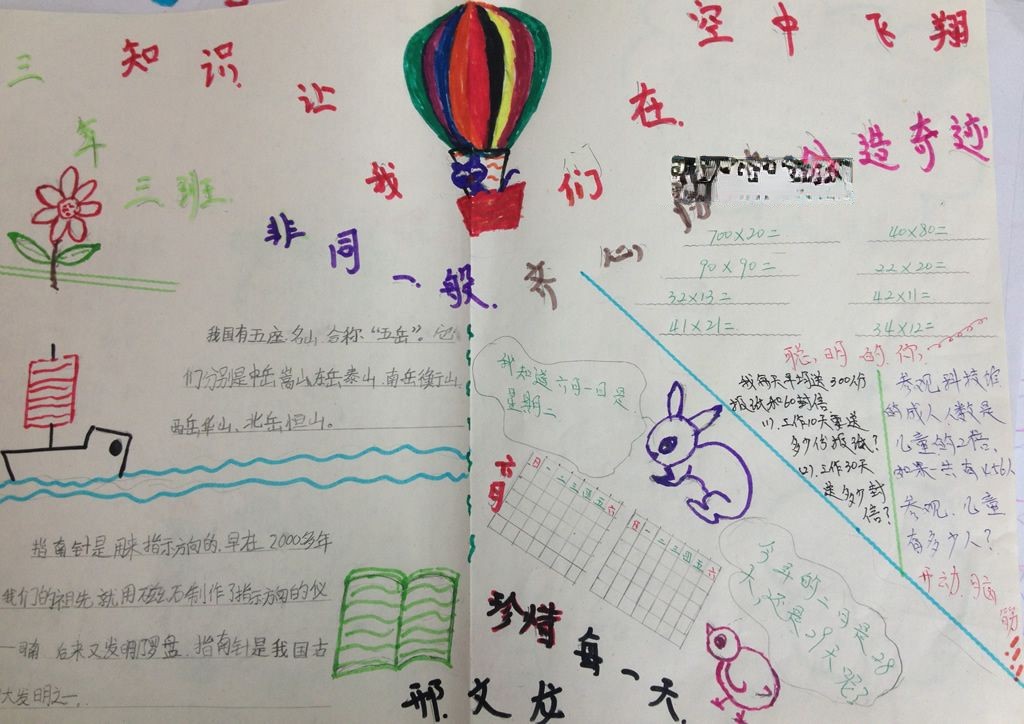 三年三班
知识让我们在空中飞翔
非同一般
齐心
造奇迹
我国有五座名山,合称“五岳”。它
们分别是中岳嵩山、东岳泰山、南岳衡山、
西岳华山、北岳恒山。
指南针是用来指示方向的,早在2000多年
我们的祖先就用磁石制作了指示方向的仪
司南 后来又发明了罗盘,指南针是我国古
大发明之一.
700×20=
40×80=
90×90=
22×20=
32×13=
42×11=
41×21=
34×12=
聪明的你,
我每天平均送300份
报纸和60封信
(1).工作10天要送
多少份报纸?
(2).工作30天
送多少封
信?
参观科技馆
的成人人数是
儿童的2倍,
如果一共有456人
参观,儿童
有多少人?
开动脑筋
我知道六月一日是
星期二
六月
日一二三四五六
日一二三四五六
今年的二月是28
天,还是29天呢?
珍惜每一天
邢文龙